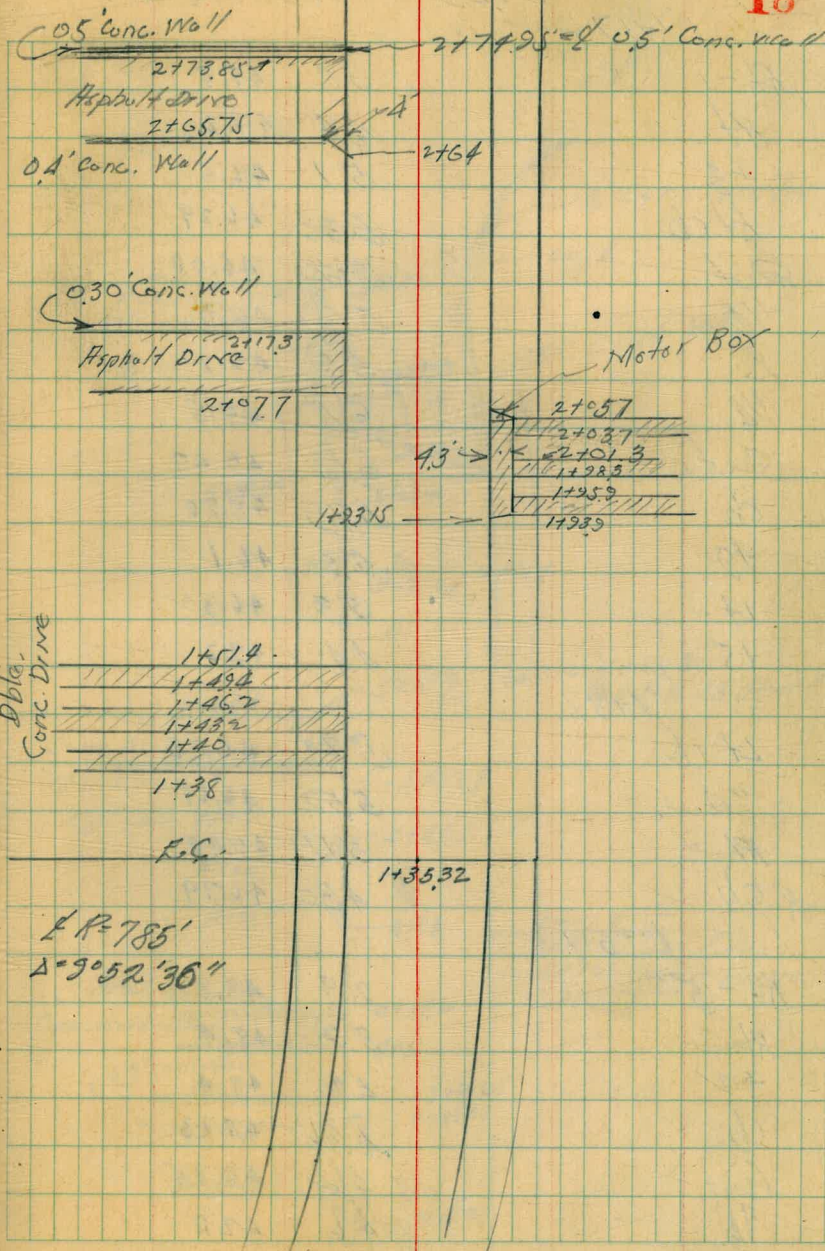 18
0.5' Conc. Wall
2+74.95 = ℄ 0.5' Conc. Wall
2+73.85
Asphalt Drive
2+65.75
4'
2+64
0.4' Conc. Wall
0.30' Conc. Wall
2+17.3
Asphalt Drive
2+07.7
Motor Box
2+05.7
2+03.7
4.3'
2+01.3
1+98.3
1+95.9
1+93.15
1+93.9
Dble.
Conc. Drive
1+51.4
1+49.4
1+46.2
1+43.2
1+40
1+38
E.C.
1+35.32
℄ R=785'
Δ=9°52'36"